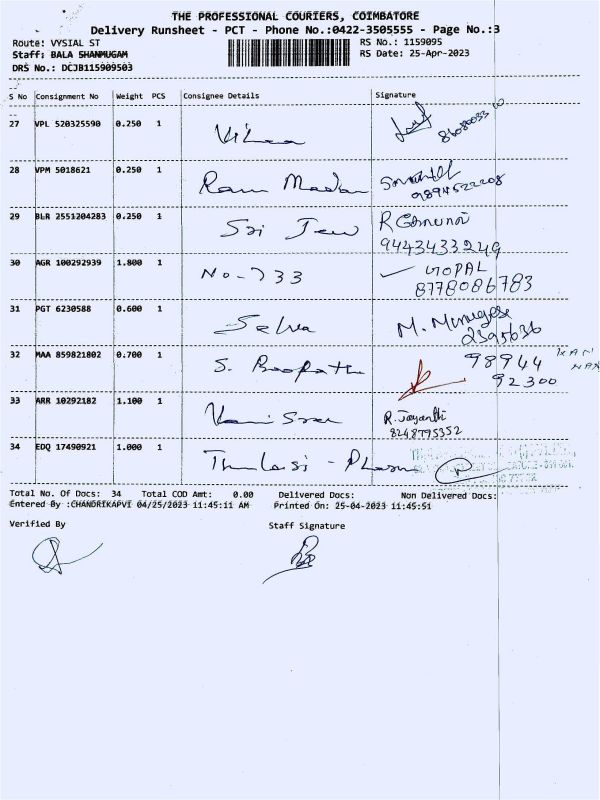 THE PROFESSIONAL COURIERS, COIMBATORE
Delivery Runsheet - PCT - Phone No.:0422-3505555 - Page No.:3
Route: VYSIAL ST
RS No.: 1159095
Staff: BALA SHANMUGAM
RS Date: 25-Apr-2023
DRS No.: DCJB115909503
S No Consignment No Weight PCS Consignee Details Signature
27 VPL 520325590 0.250 1
28 VPM 5018621 0.250 1 Ram Madan
9894522208
29 BLR 2551204283 0.250 1 Sri Jew
9443433249
30 AGR 100292939 1.800 1 No-733 GOPAL
8778086783
31 PGT 6230588 0.600 1 Selva M. Murugesh
2395636
32 MAA 859821802 0.700 1 S. Boopathi 98944
92300
33 ARR 10292182 1.100 1 R. Jayanthi
8248795352
34 EDQ 17490921 1.000 1 Thulasi - Pharma
Total No. Of Docs: 34 Total COD Amt: 0.00 Delivered Docs: Non Delivered Docs:
Entered By :CHANDRIKAPVI 04/25/2023 11:45:11 AM Printed On: 25-04-2023 11:45:51
Verified By Staff Signature